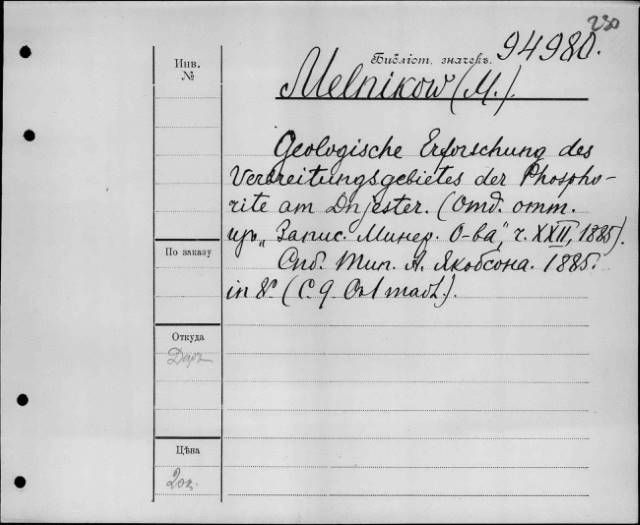 230
Инв. №
Библіот. значекъ. 94980.
Melnikow (M.).
Geologische Erforschung des
Verbreitungsgebietes der Phospho-
rite am Dnjester. (Отд. отт.
изъ „Запис. Минер. О-ва", т. XXII, 1885).
Спб. Тип. А. Якобсона. 1885.
in 8º. (С. 9
По заказу
Откуда
Даръ
Цѣна